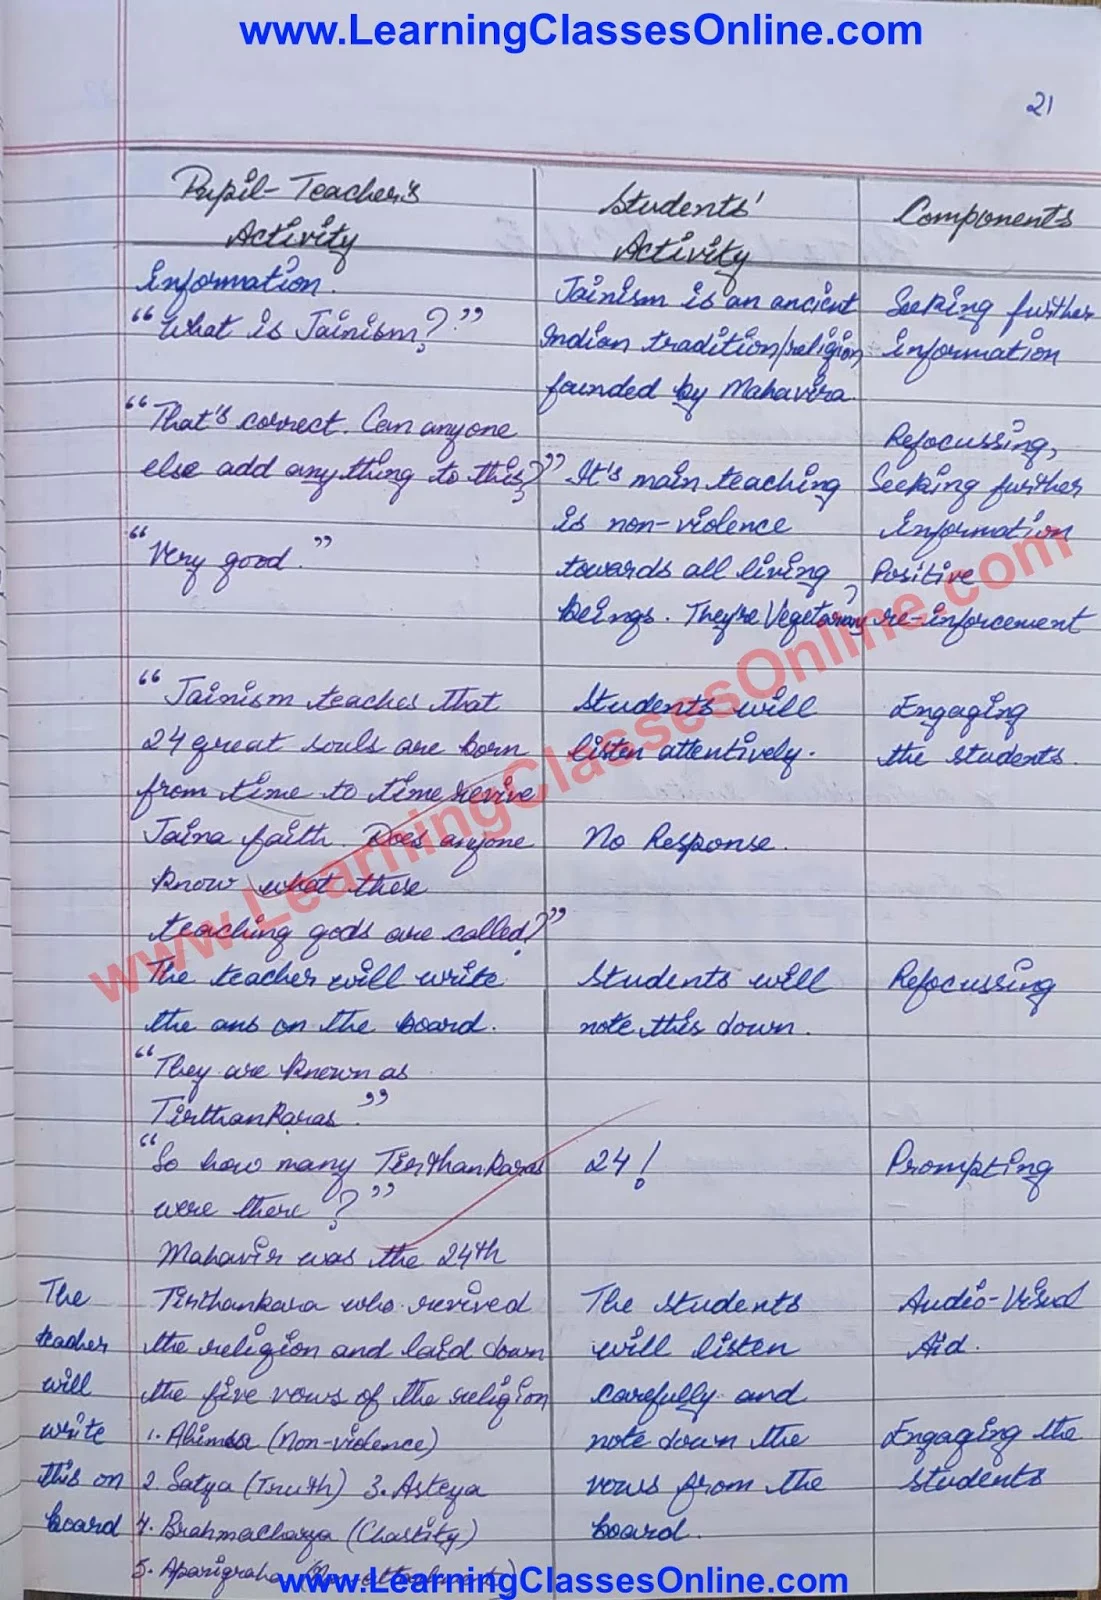 www.LearningClassesOnline.com
21
Pupil-Teacher's
Activity
Students'
Activity
Components
Information.
"What is Jainism?"
Jainism is an ancient
Indian tradition/religion
founded by Mahavira.
Seeking further
information
"That's correct. Can anyone
else add anything to this?"
It's main teaching
is non-violence
towards all living
beings. They're Vegetarian
Refocussing,
Seeking further
information
"Very good."
Positive
re-inforcement
"Jainism teaches that
24 great souls are born
from time to time revive
Jaina faith. Does anyone
know what these
teaching gods are called?"
Students will
listen attentively.
Engaging
the students.
No Response.
The teacher will write
the ans on the board.
Students will
note this down.
Refocussing
"They are known as
Tirthankaras."
"So how many Tirthankaras
were there?"
24!
Prompting
Mahavir was the 24th
Tirthankara who revived
the religion and laid down
the five vows of the religion
1. Ahimsa (Non-violence)
2. Satya (Truth) 3. Asteya
4. Brahmacharya (Chastity)
5. Aparigraha
The
teacher
will
write
this on
board
The students
will listen
carefully and
note down the
vows from the
board.
Audio-Visual
Aid.
Engaging the
students
www.LearningClassesOnline.com
www.LearningClassesOnline.com